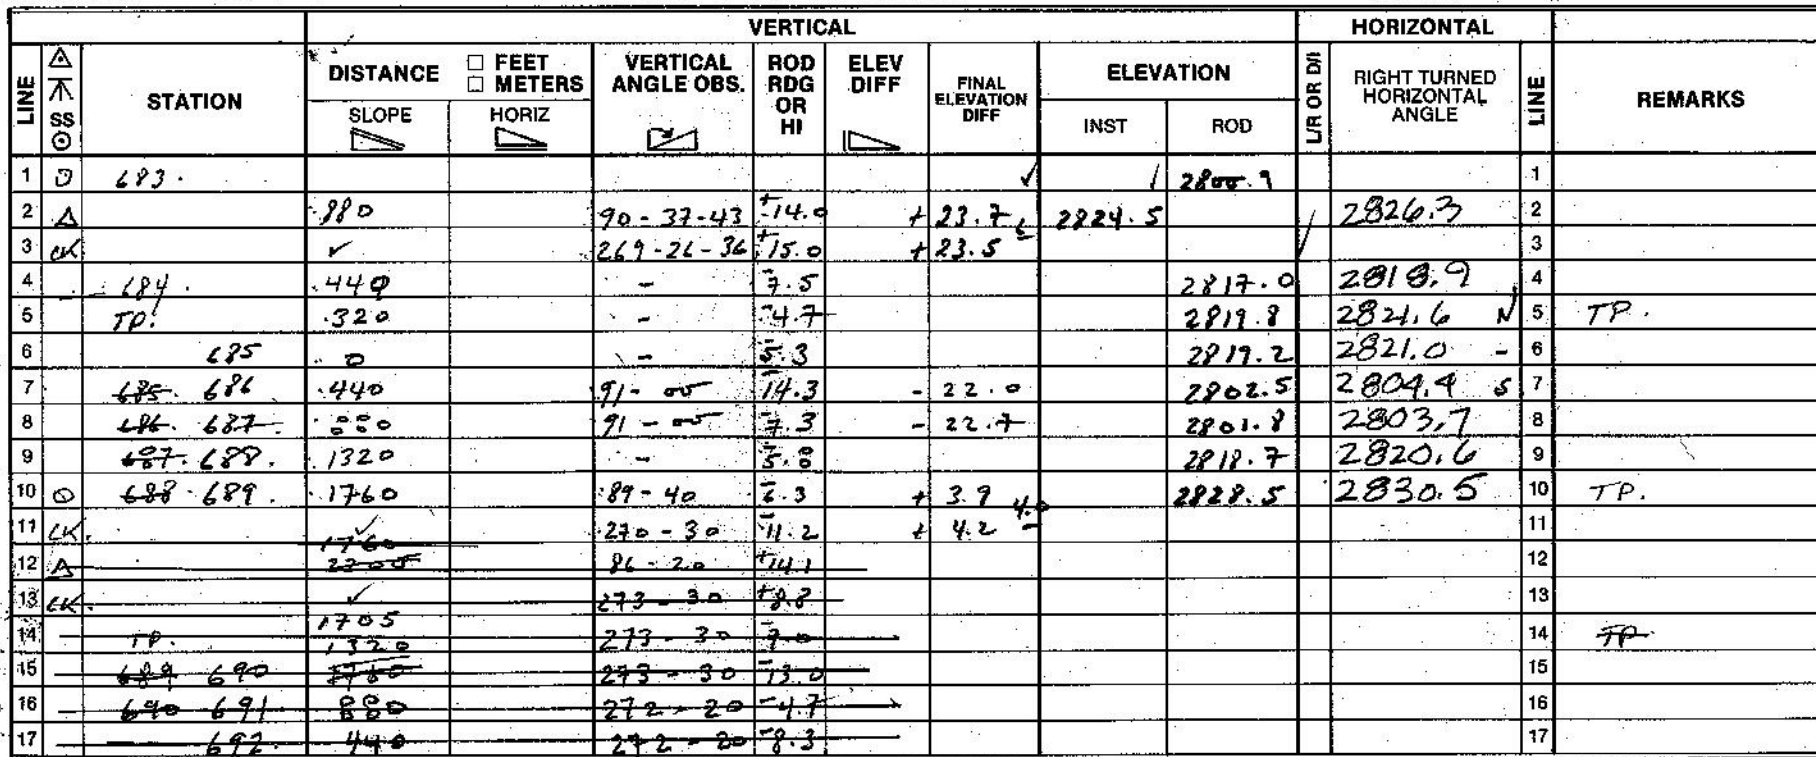 VERTICAL HORIZONTAL
LINE SS STATION DISTANCE □ FEET □ METERS SLOPE HORIZ VERTICAL ANGLE OBS. ROD RDG OR HI ELEV DIFF FINAL ELEVATION DIFF ELEVATION INST ROD L/R OR D/I RIGHT TURNED HORIZONTAL ANGLE LINE REMARKS
1 683. ✓ 2800.9 1
2 △ 880 90-37-43 +14.0 +23.7 6 2824.5 2826.3 2
3 CK ✓ 269-26-36 +15.0 +23.5 3
4 684. 440 - -7.5 2817.0 2818.9 4
5 TP. 320 - -4.7 2819.8 2821.6 N 5 TP.
6 685 0 - -5.3 2819.2 2821.0 - 6
7 685. 686 440 91-00 -14.3 -22.0 2802.5 2804.4 S 7
8 686. 687. 880 91-00 -7.3 -22.7 2801.8 2803.7 8
9 687. 688. 1320 - -5.8 2818.7 2820.6 9
10 ⊙ 688. 689. 1760 89-40 -6.3 +3.9 4.0 2828.5 2830.5 10 TP.
11 CK. ✓ 270-30 -11.2 +4.2 11
12 △ 1760 2200 86-20 +14.1 12
13 CK. ✓ 273-30 +8.8 13
14 TP. 1705 1320 273-30 -9.0 14 TP.
15 689 690 1760 273-30 -13.0 15
16 690 691 880 272-20 -4.7 16
17 692. 440 272-20 -8.3 17